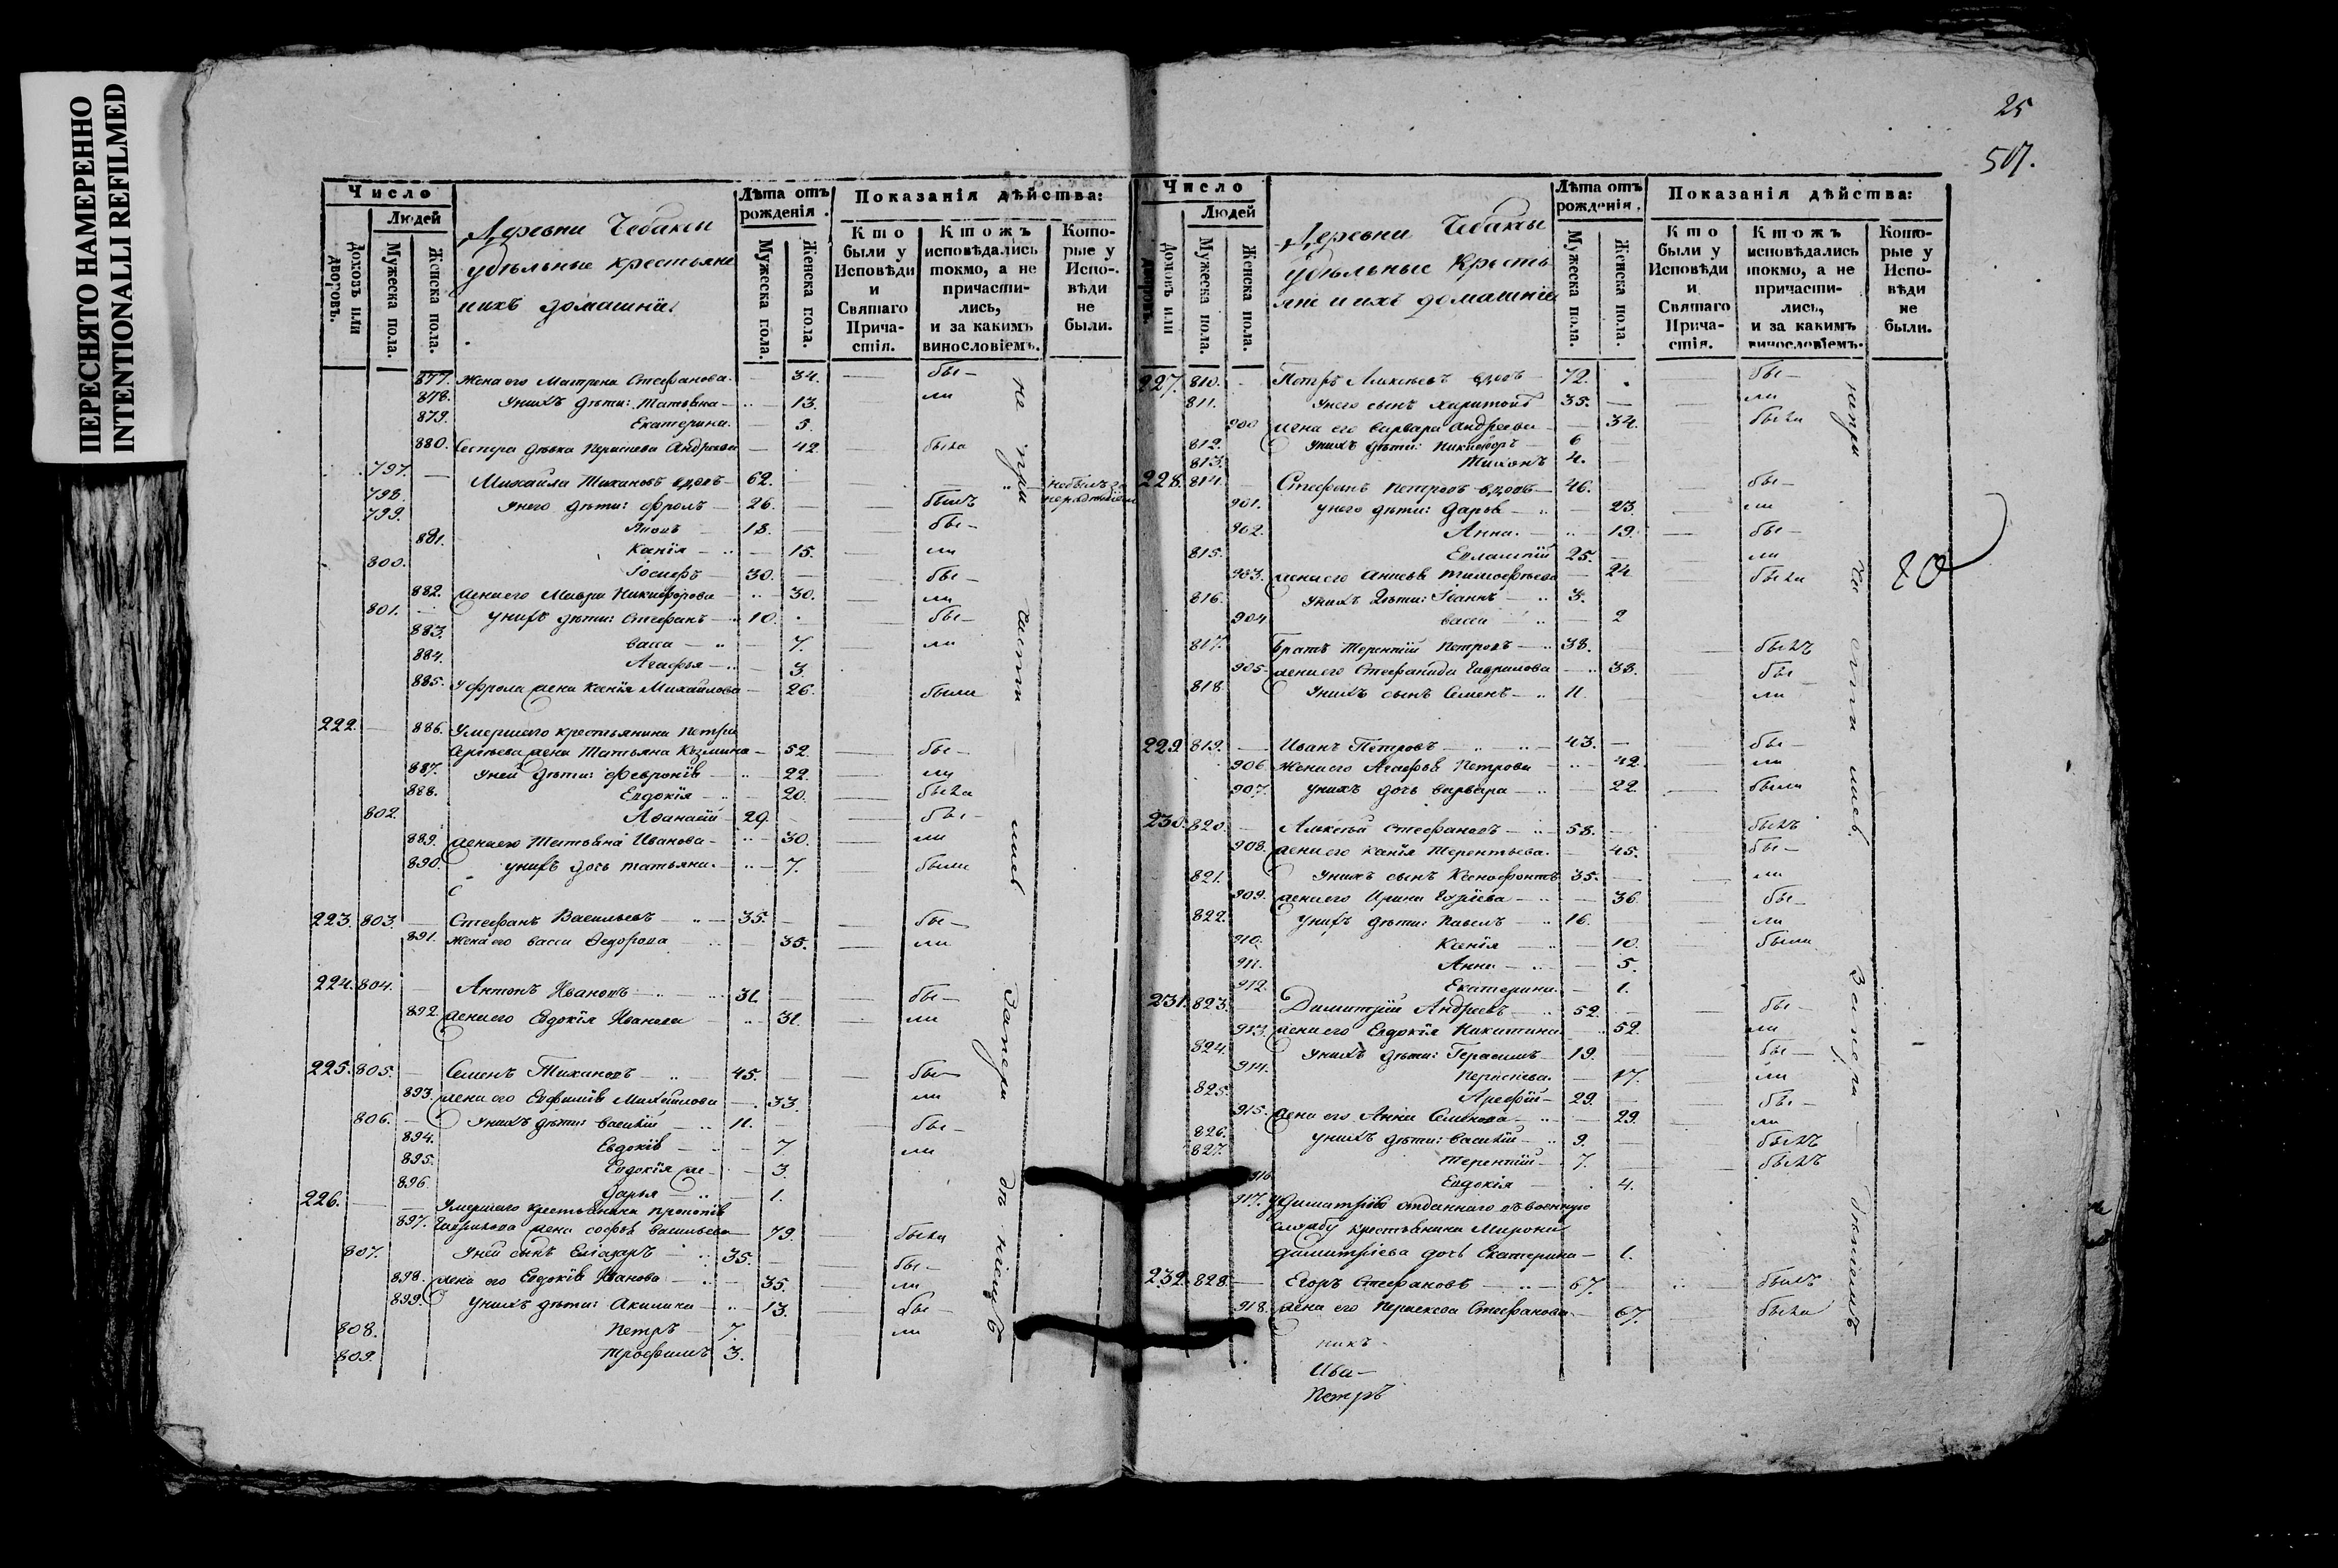 ПЕРЕСНЯТО НАМЕРЕННО
INTENTIONALLI REFILMED
25
507.
Число
Людей
Домовъ или дворовъ.
Мужеска пола.
Женска пола.
Деревни Чебаки
удѣльные крестьяне
и ихъ домашнія
Лѣта отъ рожденія.
Мужеска пола.
Женска пола.
Показанія дѣйства:
Кто были у Исповѣди и Святаго Причастія.
Ктожъ исповѣдались токмо, а не причастились, и за какимъ винословіемъ.
Которые у Исповѣди не были.
877. Жена его Матрена Стефанова — 34. бы—
878. У нихъ дѣти: Татьяна — 13. ли
879. Екатерина. — 5.
880. Сестра дѣвка Андреева — 42 была
797. Михайла Тихановъ вдовъ — 62. не былъ за нерадѣніем
798. У него дѣти: Фролъ — 26. былъ
799. 18. бы—
881. Ксенія — 15. ли
800. Іосифъ — 30. бы—
882. Жена его Мавра Никифорова — 30. ли
801. У нихъ дѣти: Стефанъ — 10. бы—
883. Васса — 7. ли
884. Агафья — 3.
885. У Фрола жена Ксенія Михайлова — 26. были
222. 886. Умершаго крестьянина Петра
Сергѣева жена Татьяна Козмина — 52. бы—
887. У ней дѣти: Февронія — 22. ли
888. Евдокія — 20. была
802. Афанасій — 29. бы—
889. Жена его Татьяна Иванова — 30. ли
890. У нихъ дочь Татьяна. — 7. были
223. 803. Стефанъ Васильевъ — 35. бы—
891. Жена его Васса Федорова — 35. ли
224. 804. Антонъ Ивановъ — 31. бы—
892. Жена его Евдокія Иванова — 31. ли
225. 805. Семенъ Тихановъ — 45. бы—
893. Жена его Евфимія Михайлова — 33. ли
806. У нихъ дѣти: Василій — 11. бы—
894. Евдокія — 7. ли
895. Евдокія — 3.
896. Дарья — 1.
226. Умершаго крестьянина Прокопія
897. Гаврилова жена Софья Васильева — 79. была
807. У ней сынъ Елиазаръ — 35. бы—
898. Жена его Евдокія Иванова — 35. ли
899. У нихъ дѣти: Акилина — 13. бы—
808. Петръ — 7. ли
809. Трофимъ 3.
не при части лись
Число
Людей
Домовъ или дворовъ.
Мужеска пола.
Женска пола.
Деревни Чебаки
удѣльные Кресть
яне и ихъ домашнія
Лѣта отъ рожденія.
Мужеска пола.
Женска пола.
Показанія дѣйства:
Кто были у Исповѣди и Святаго Причастія.
Ктожъ исповѣдались токмо, а не причастились, и за какимъ винословіемъ.
Которые у Исповѣди не были.
227. 810. Петръ Алексѣевъ вдовъ — 72. бы—
811. У него сынъ Харитонъ — 35. ли
900 Жена его Варвара Андреева — 34. была
812. У нихъ дѣти: Никифоръ — 6
813. Тихонъ 4.
228. 814. Стефанъ Петровъ вдовъ — 46. бы—
901. У него дѣти: Дарья — 23. ли
902. Анна. — 19. бы—
815. Евлампій 25. ли
903. Жена его Анисья Тимофеева — 24 была
816. У нихъ дѣти: Іоаннъ — 3.
904 Васса — 2
817. Братъ Терентій Петровъ — 38. былъ
905. Жена его Стефанида Гаврилова — 38. бы—
818. У нихъ сынъ Семенъ — 11. ли
229 819. Иванъ Петровъ — 43. бы—
906. Жена его Агафья Петрова — 42. ли
907. У нихъ дочь Варвара — 22. были
230. 820. Алексѣй Стефановъ — 58. былъ
908. Жена его Ксенія Терентьева. — 45. бы—
821. У нихъ сынъ Ксенофонтъ 35. ли
909. Жена его Ирина — 36. бы—
822. У нихъ дѣти: Павелъ — 16. ли
910. Ксенія — 10. были
911. Анна — 5.
912. Екатерина. — 1.
231. 823. Димитрій Андреевъ — 52. бы—
913. Жена его Евдокія Никитина — 52. ли
824. У нихъ дѣти: Герасимъ — 19. бы—
914. 17. ли
825. Арефій — 29. бы—
915. Жена его Анна Семенова — 29. ли
826. У нихъ дѣти: Василій — 9. былъ
827. Терентій — 7. былъ
916 Евдокія — 4.
917. У Димитрія отданнаго въ военную
службу крестьянина Мирона
Димитріева дочь Екатерина — 1.
232. 828. Егоръ Стефановъ — 67. былъ
918. Жена его Стефанова. — 67. была
никъ
Ива—
Петръ